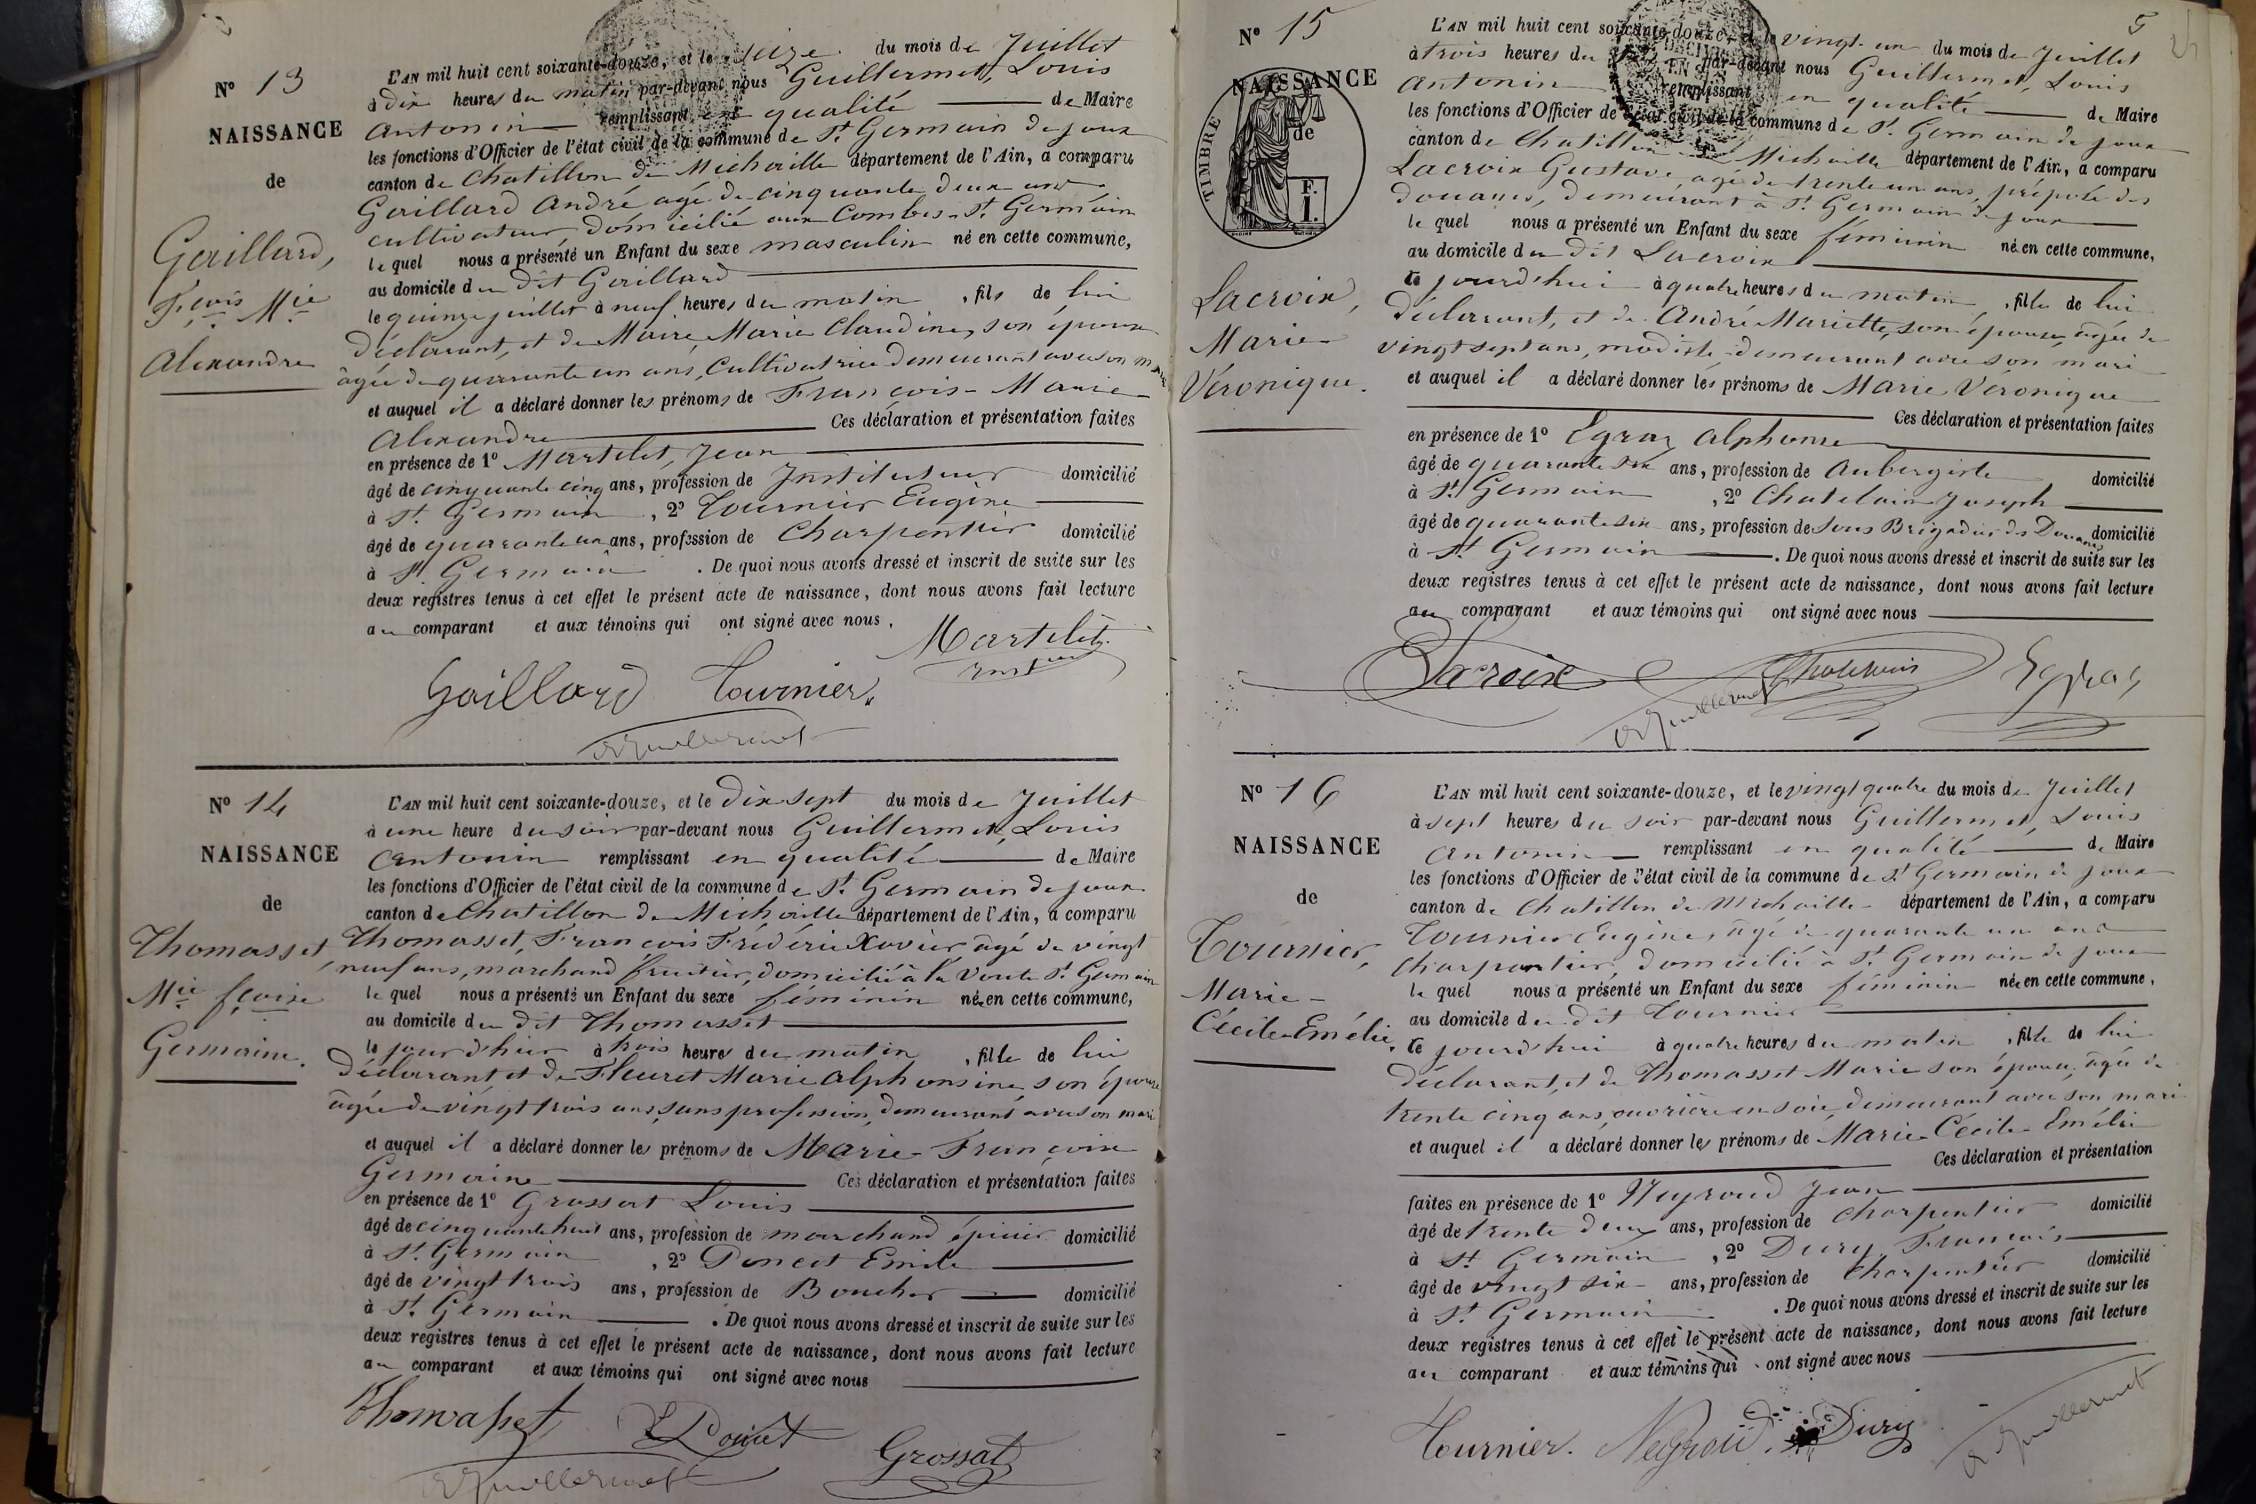 N° 13
NAISSANCE
de
Gaillard,
Fçois Mie
Alexandre
L'AN mil huit cent soixante-douze, et le seize du mois de Juillet
à dix heures du matin par-devant nous Guillermet, Louis
Antonin remplissant en qualité de Maire
les fonctions d'Officier de l'état civil de la commune de St Germain de joux
canton de Chatillon de Michaille département de l'Ain, a comparu
Gaillard André agé de cinquante deux ans
cultivateur, domicilié aux Combes St Germain
le quel nous a présenté un Enfant du sexe masculin né en cette commune,
au domicile du dit Gaillard
le quinze juillet à neuf heures du matin, fils de lui
déclarant, et de Maire, Marie Claudine, son épouse
âgée de quarante un ans, Cultivatrice demeurant avec son mari
et auquel il a déclaré donner les prénoms de François-Marie
Alexandre Ces déclaration et présentation faites
en présence de 1° Martelet, Jean
âgé de cinquante cinq ans, profession de Instituteur domicilié
à St Germain, 2° Tournier Eugène
âgé de quarante un ans, profession de Charpentier domicilié
à St Germain. De quoi nous avons dressé et inscrit de suite sur les
deux registres tenus à cet effet le présent acte de naissance, dont nous avons fait lecture
au comparant et aux témoins qui ont signé avec nous.
Martelet
Gaillard Tournier
Guillermet
N° 14
NAISSANCE
de
Thomasset,
Mie fçoise
Germaine.
L'AN mil huit cent soixante-douze, et le dix sept du mois de Juillet
à une heure du soir par-devant nous Guillermet, Louis
Antonin remplissant en qualité de Maire
les fonctions d'Officier de l'état civil de la commune de St Germain de joux
canton de Chatillon de Michaille département de l'Ain, a comparu
Thomasset, François Frédéric Xavier âgé de vingt
neuf ans, marchand fruitier, domicilié à la Voute St Germain
le quel nous a présenté un Enfant du sexe féminin née en cette commune,
au domicile du dit Thomasset
le jour d'hier à trois heures du matin, fille de lui
déclarant, et de Fleuret Marie Alphonsine, son épouse
âgée de vingt trois ans, sans profession, demeurant avec son mari
et auquel il a déclaré donner les prénoms de Marie-Françoise
Germaine Ces déclaration et présentation faites
en présence de 1° Grossat Louis
âgé de cinquante huit ans, profession de marchand épicier domicilié
à St Germain, 2° Poncet Emile
âgé de vingt trois ans, profession de Boucher domicilié
à St Germain. De quoi nous avons dressé et inscrit de suite sur les
deux registres tenus à cet effet le présent acte de naissance, dont nous avons fait lecture
au comparant et aux témoins qui ont signé avec nous
Thomasset Poncet Grossat
Guillermet
5
N° 15
NAISSANCE
de
TIMBRE
F.
1.
Lacroix,
Marie-
Véronique.
L'AN mil huit cent soixante-douze, et le vingt-un du mois de Juillet
à trois heures du par-devant nous Guillermet, Louis
Antonin remplissant en qualité de Maire
les fonctions d'Officier de l'état civil de la commune de St Germain de joux
canton de Chatillon de Michaille département de l'Ain, a comparu
Lacroix Gustave, agé de trente un ans, préposé des
douanes, demeurant à St Germain de joux
le quel nous a présenté un Enfant du sexe féminin née en cette commune,
au domicile du dit Lacroix
ce jourd'hui à quatre heures du matin, fille de lui
déclarant, et de André Mariette, son épouse, âgée de
vingt sept ans, modiste demeurant avec son mari
et auquel il a déclaré donner les prénoms de Marie Véronique
Ces déclaration et présentation faites
en présence de 1° Egraz Alphonse
âgé de quarante six ans, profession de Aubergiste domicilié
à St Germain, 2° Chatelain Joseph
âgé de quarante six ans, profession de Sous Brigadier des Douanes domicilié
à St Germain. De quoi nous avons dressé et inscrit de suite sur les
deux registres tenus à cet effet le présent acte de naissance, dont nous avons fait lecture
au comparant et aux témoins qui ont signé avec nous
Lacroix Chatelain Egraz
Guillermet
N° 16
NAISSANCE
de
Tournier,
Marie-
Cécile-Emélie.
L'AN mil huit cent soixante-douze, et le vingt quatre du mois de Juillet
à sept heures du soir par-devant nous Guillermet, Louis
Antonin remplissant en qualité de Maire
les fonctions d'Officier de l'état civil de la commune de St Germain de joux
canton de Chatillon de Michaille département de l'Ain, a comparu
Tournier Eugène, âgé de quarante un ans
Charpentier, domicilié à St Germain de joux
le quel nous a présenté un Enfant du sexe féminin née en cette commune,
au domicile du dit Tournier
ce jourd'hui à quatre heures du matin, fille de lui
déclarant, et de Thomasset Marie son épouse, âgée de
trente cinq ans, ouvrière en soie, demeurant avec son mari
et auquel il a déclaré donner les prénoms de Marie-Cécile-Emélie
Ces déclaration et présentation
faites en présence de 1° Neyroud Jean
âgé de trente deux ans, profession de Charpentier domicilié
à St Germain, 2° Dury François
âgé de vingt six ans, profession de Charpentier domicilié
à St Germain. De quoi nous avons dressé et inscrit de suite sur les
deux registres tenus à cet effet le présent acte de naissance, dont nous avons fait lecture
au comparant et aux témoins qui ont signé avec nous
Tournier. Neyroud Dury
Guillermet